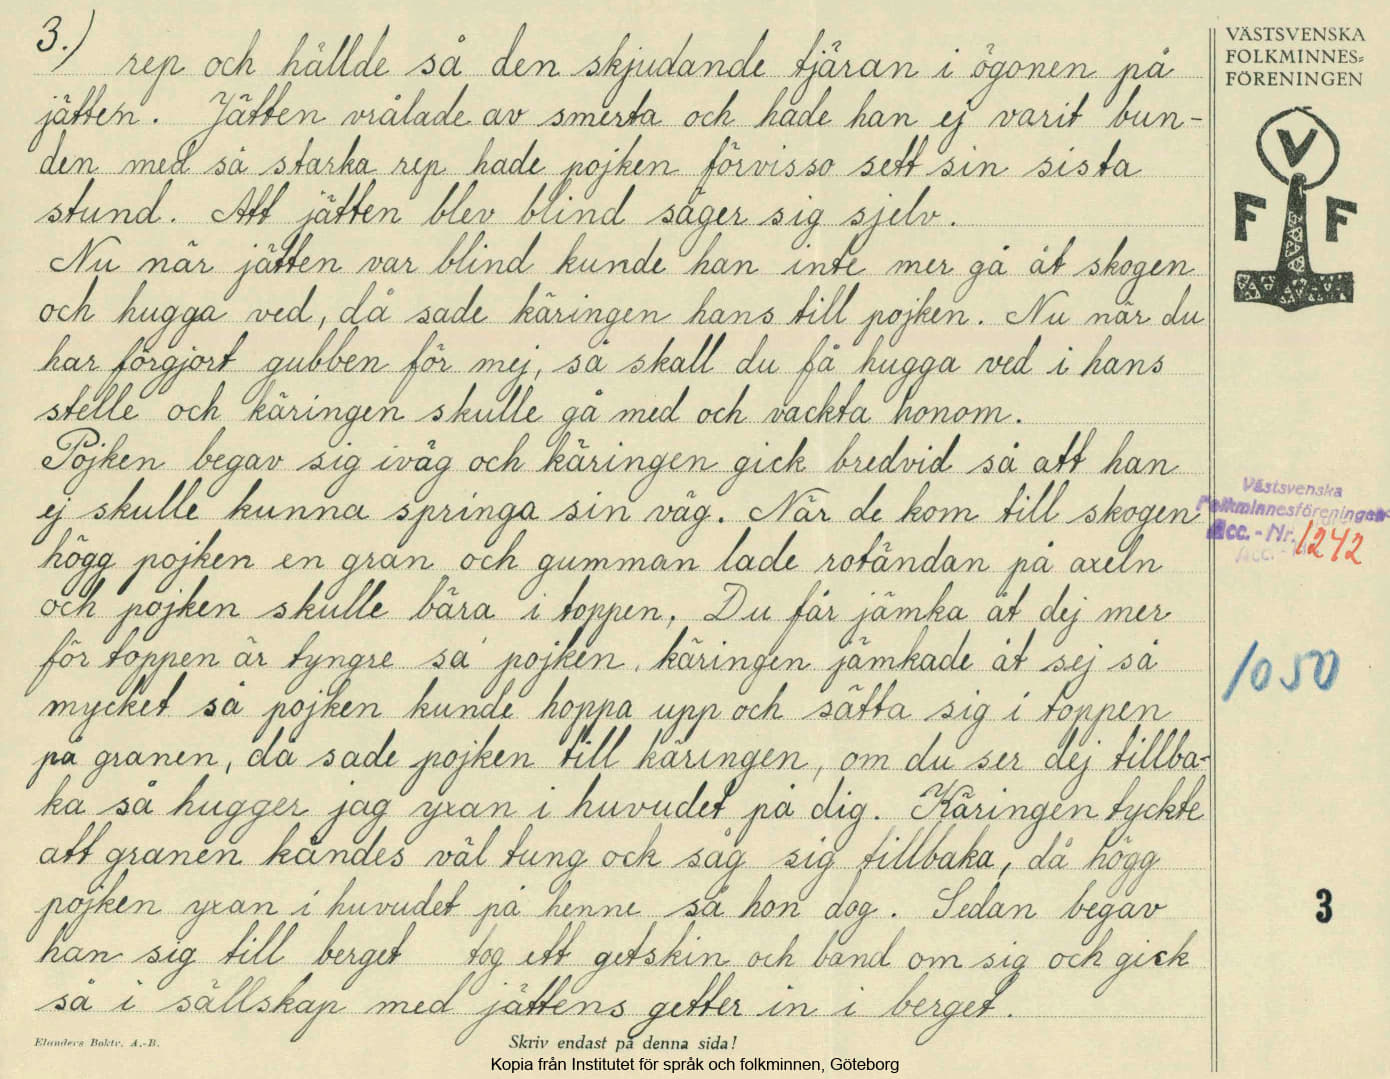 3.)
rep och hällde så den skjudande tjäran i ögonen på
jätten. Jätten vrålade av smerta och hade han ej varit bun-
den med så starka rep hade pojken förvisso sett sin sista
stund. Att jätten blev blind säger sig sjelv.
Nu när jätten var blind kunde han inte mer gå åt skogen
och hugga ved, då sade käringen hans till pojken. Nu när du
har förgjort gubben för mej, så skall du få hugga ved i hans
stelle och käringen skulle gå med och vackta honom.
Pojken begav sig iväg och käringen gick bredvid så att han
ej skulle kunna springa sin väg. När de kom till skogen
högg pojken en gran och gumman lade rotändan på axeln
och pojken skulle bära i toppen. Du får jämka åt dej mer
för toppen är tyngre sa pojken, käringen jämkade åt sej så
mycket så pojken kunde hoppa upp och sätta sig i toppen
på granen, då sade pojken till käringen, om du ser dej tillba-
ka så hugger jag yxan i huvudet på dig. Käringen tyckte
att granen kändes väl tung ock såg sig tillbaka, då högg
pojken yxan i huvudet på henne så hon dog. Sedan begav
han sig till berget tog ett getskin och band om sig och gick
så i sällskap med jättens getter in i berget.
VÄSTSVENSKA
FOLKMINNES-
FÖRENINGEN
V
F F
Västsvenska
Folkminnesföreningen
Acc. - Nr. 1242
1050
3
Elanders Boktr. A.-B.
Skriv endast på denna sida!
Kopia från Institutet för språk och folkminnen, Göteborg